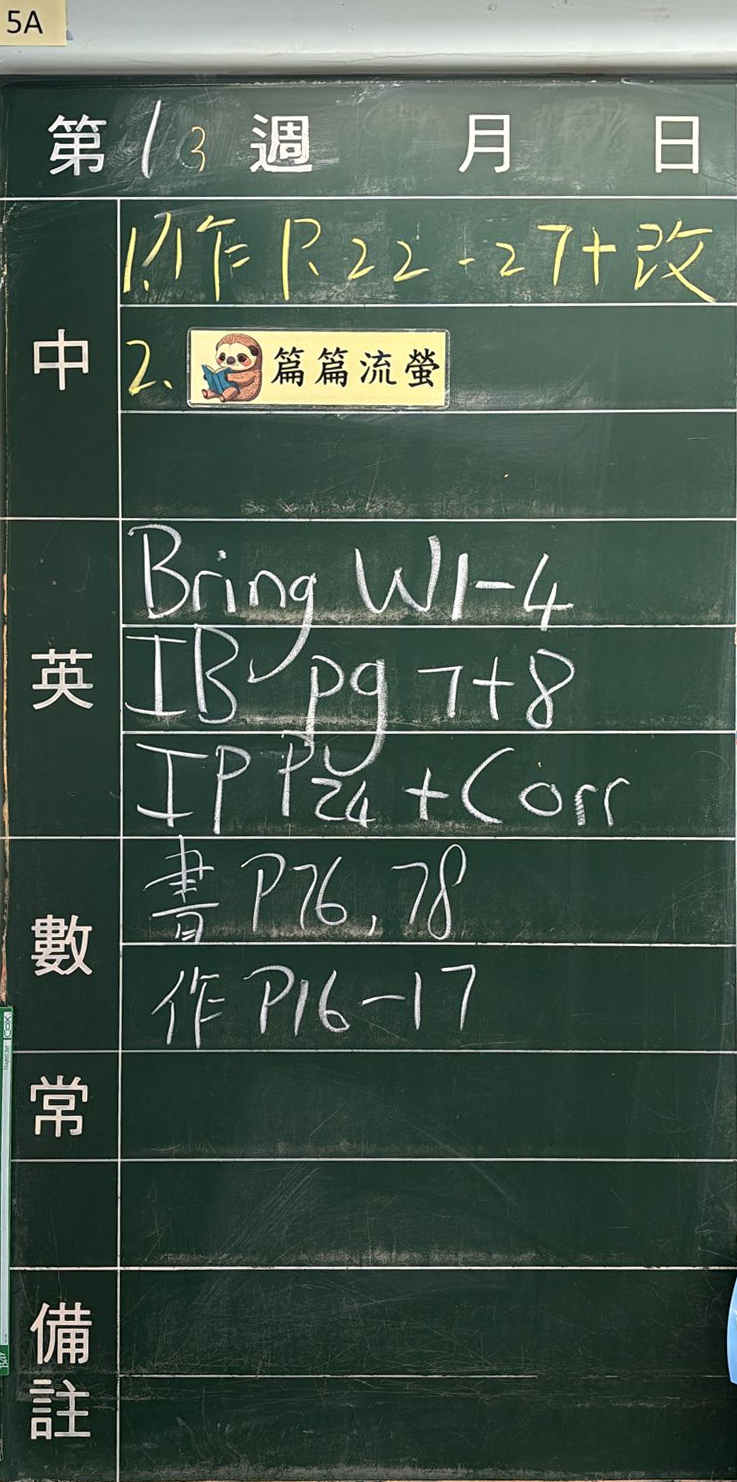 5A
第13週 月 日
中
1.作 P.22-27+改
2. 篇篇流螢
英
Bring W1-4
IB pg 7+8
IP P24 + Corr
數
書 P76, 78
作 P16-17
常
備註